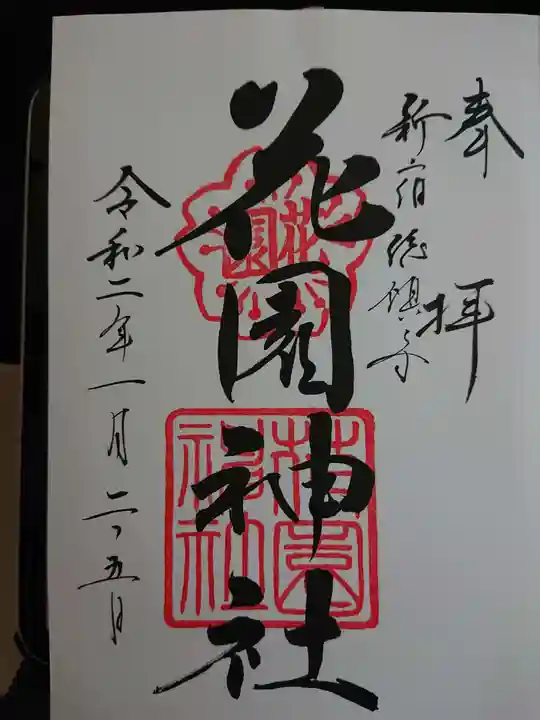 奉拝
新宿総鎮守
花園神社
花園
花園神社
令和二年一月二十五日